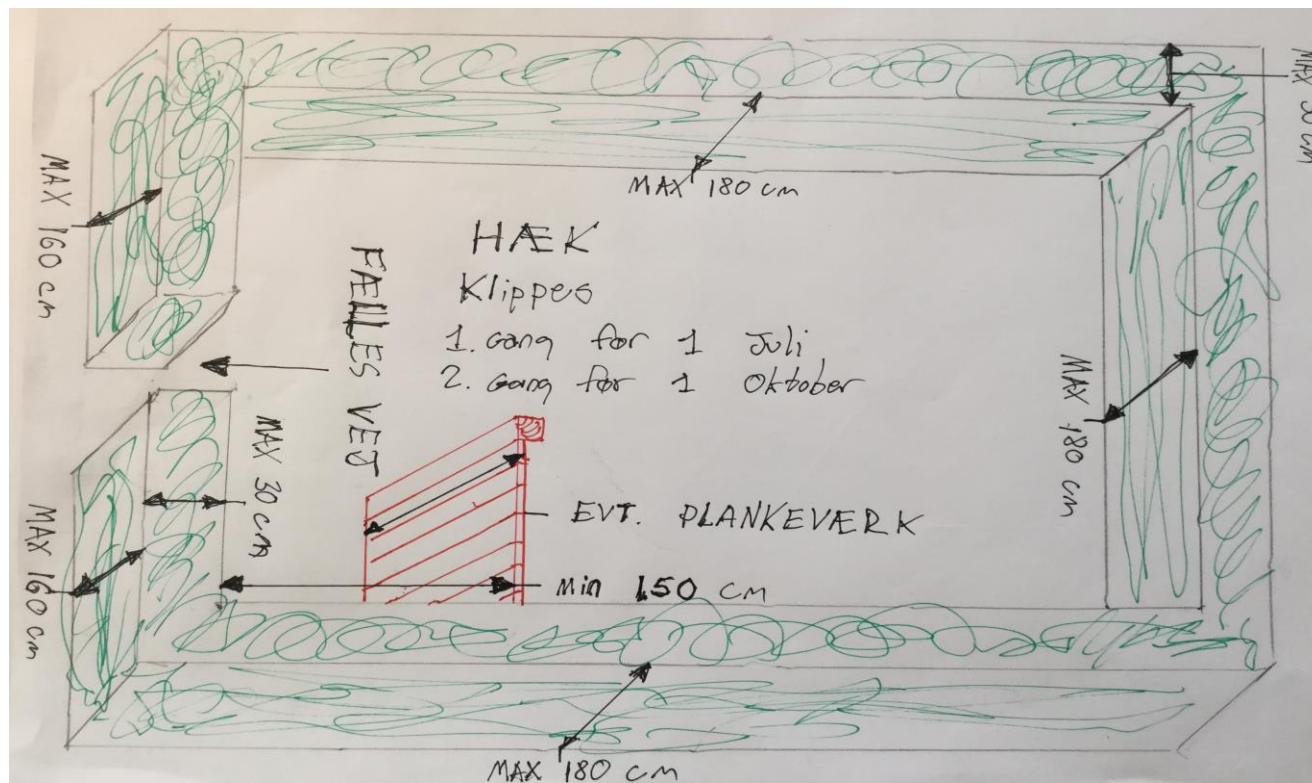 MAX 30 cm
MAX 180 cm
MAX 160 cm
HÆK
Klippes
1. gang før 1 Juli
2. gang før 1 Oktober
FÆLLES VEJ
MAX 180 cm
MAX 30 cm
EVT. PLANKEVÆRK
Min 150 cm
MAX 160 cm
MAX 180 cm